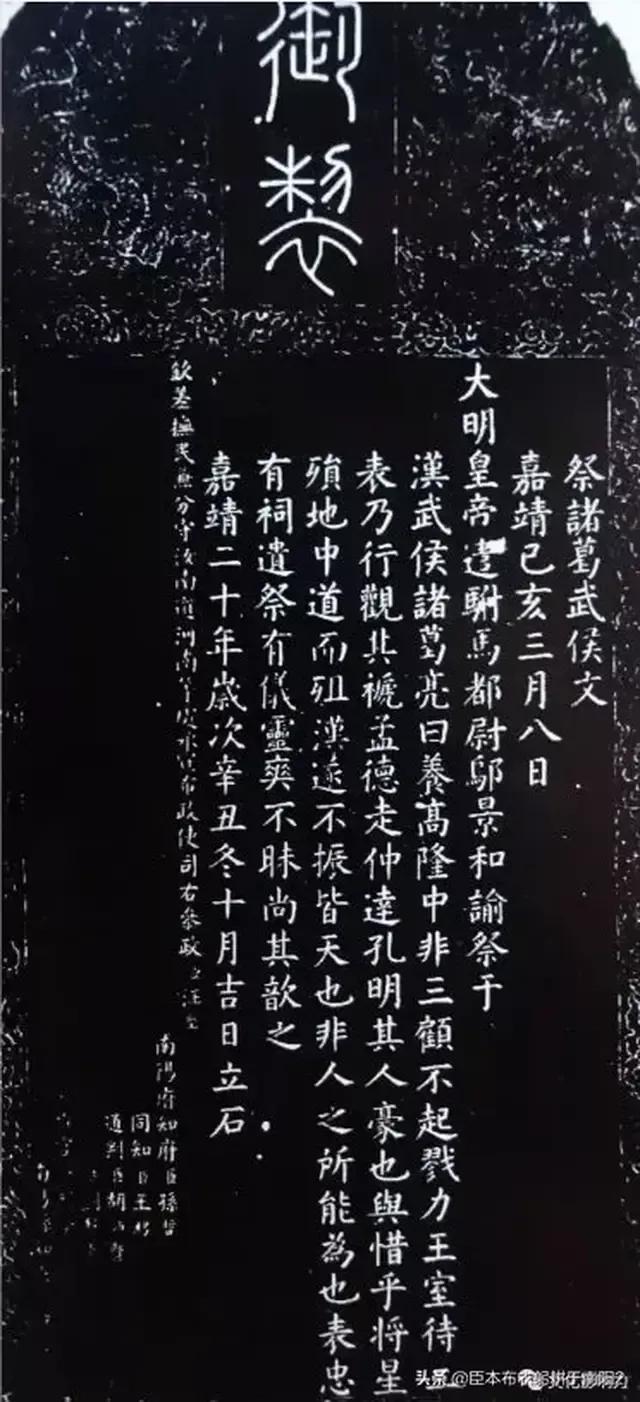 御製
祭諸葛武侯文
嘉靖己亥三月八日
大明皇帝遣駙馬都尉鄔景和諭祭于
漢武侯諸葛亮曰養高隆中非三顧不起戮力王室待二
表乃行觀其褫孟德走仲達孔明其人豪也與惜乎將星
殞地中道而殂漢遂不振皆天也非人之所能為也表忠
有祠遺祭有儀靈爽不昧尚其歆之
嘉靖二十年歲次辛丑冬十月吉日立石
欽差撫民無分守汝南道河南等處承宣布政使司右參政
南陽府知府臣孫哲
同知臣王
通判臣胡
頭条@臣本布衣躬耕于南阳2
文化影响力